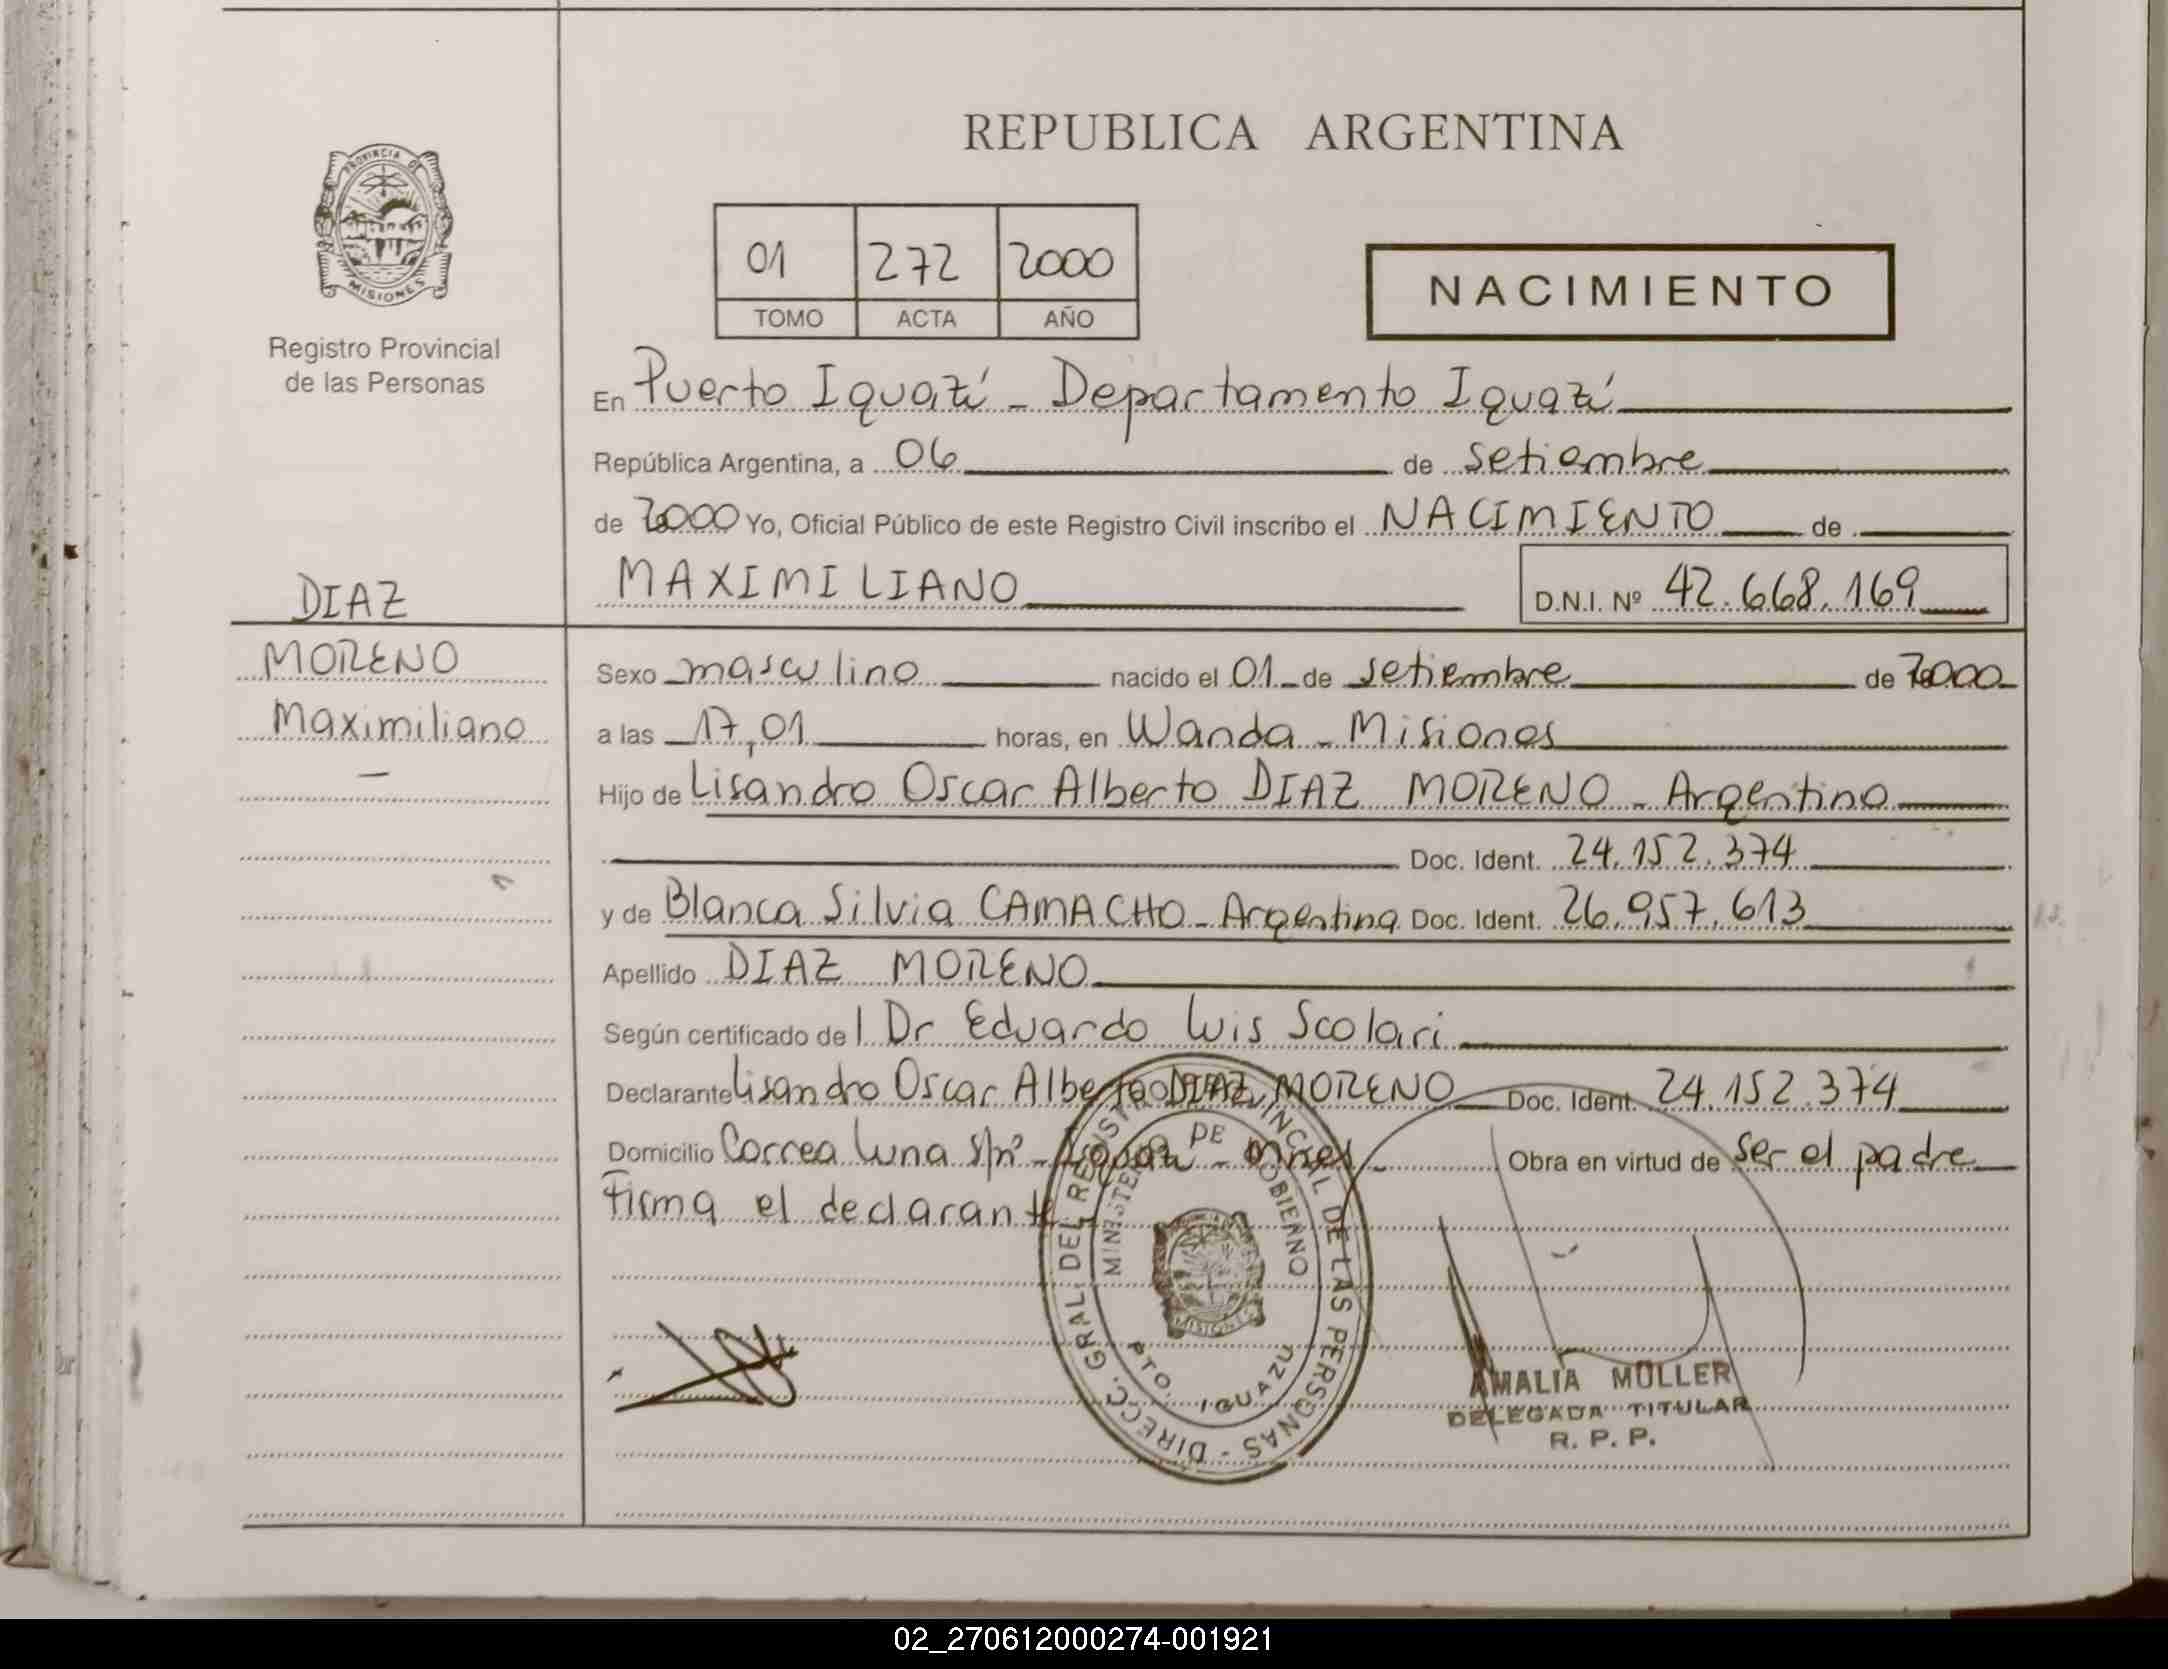 REPUBLICA ARGENTINA
PROVINCIA DE
MISIONES
Registro Provincial
de las Personas
01 272 2000
TOMO ACTA AÑO
NACIMIENTO
En Puerto Iguazú - Departamento Iguazú
República Argentina, a 06 de setiembre
de 2000 Yo, Oficial Público de este Registro Civil inscribo el NACIMIENTO de
MAXIMILIANO D.N.I. Nº 42.668.169
DIAZ
MORENO
Maximiliano
Sexo masculino nacido el 01 de setiembre de 2000
a las 17,01 horas, en Wanda - Misiones
Hijo de Lisandro Oscar Alberto DIAZ MORENO - Argentino
Doc. Ident. 24.152.374
y de Blanca Silvia CAMACHO - Argentina Doc. Ident. 26.957.613
Apellido DIAZ MORENO
Según certificado de l Dr Eduardo Luis Scolari
Declarante Lisandro Oscar Alberto DIAZ MORENO Doc. Ident. 24.152.374
Domicilio Correa Luna s/nº - Iguazú - Mnes - Obra en virtud de ser el padre
Firma el declarante
DIRECC. GRAL. DEL REGISTRO PROVINCIAL DE LAS PERSONAS -
MINISTERIO DE GOBIERNO
MISIONES
PTO. IGUAZU
AMALIA MULLER
DELEGADA TITULAR
R. P. P.
02_270612000274-001921